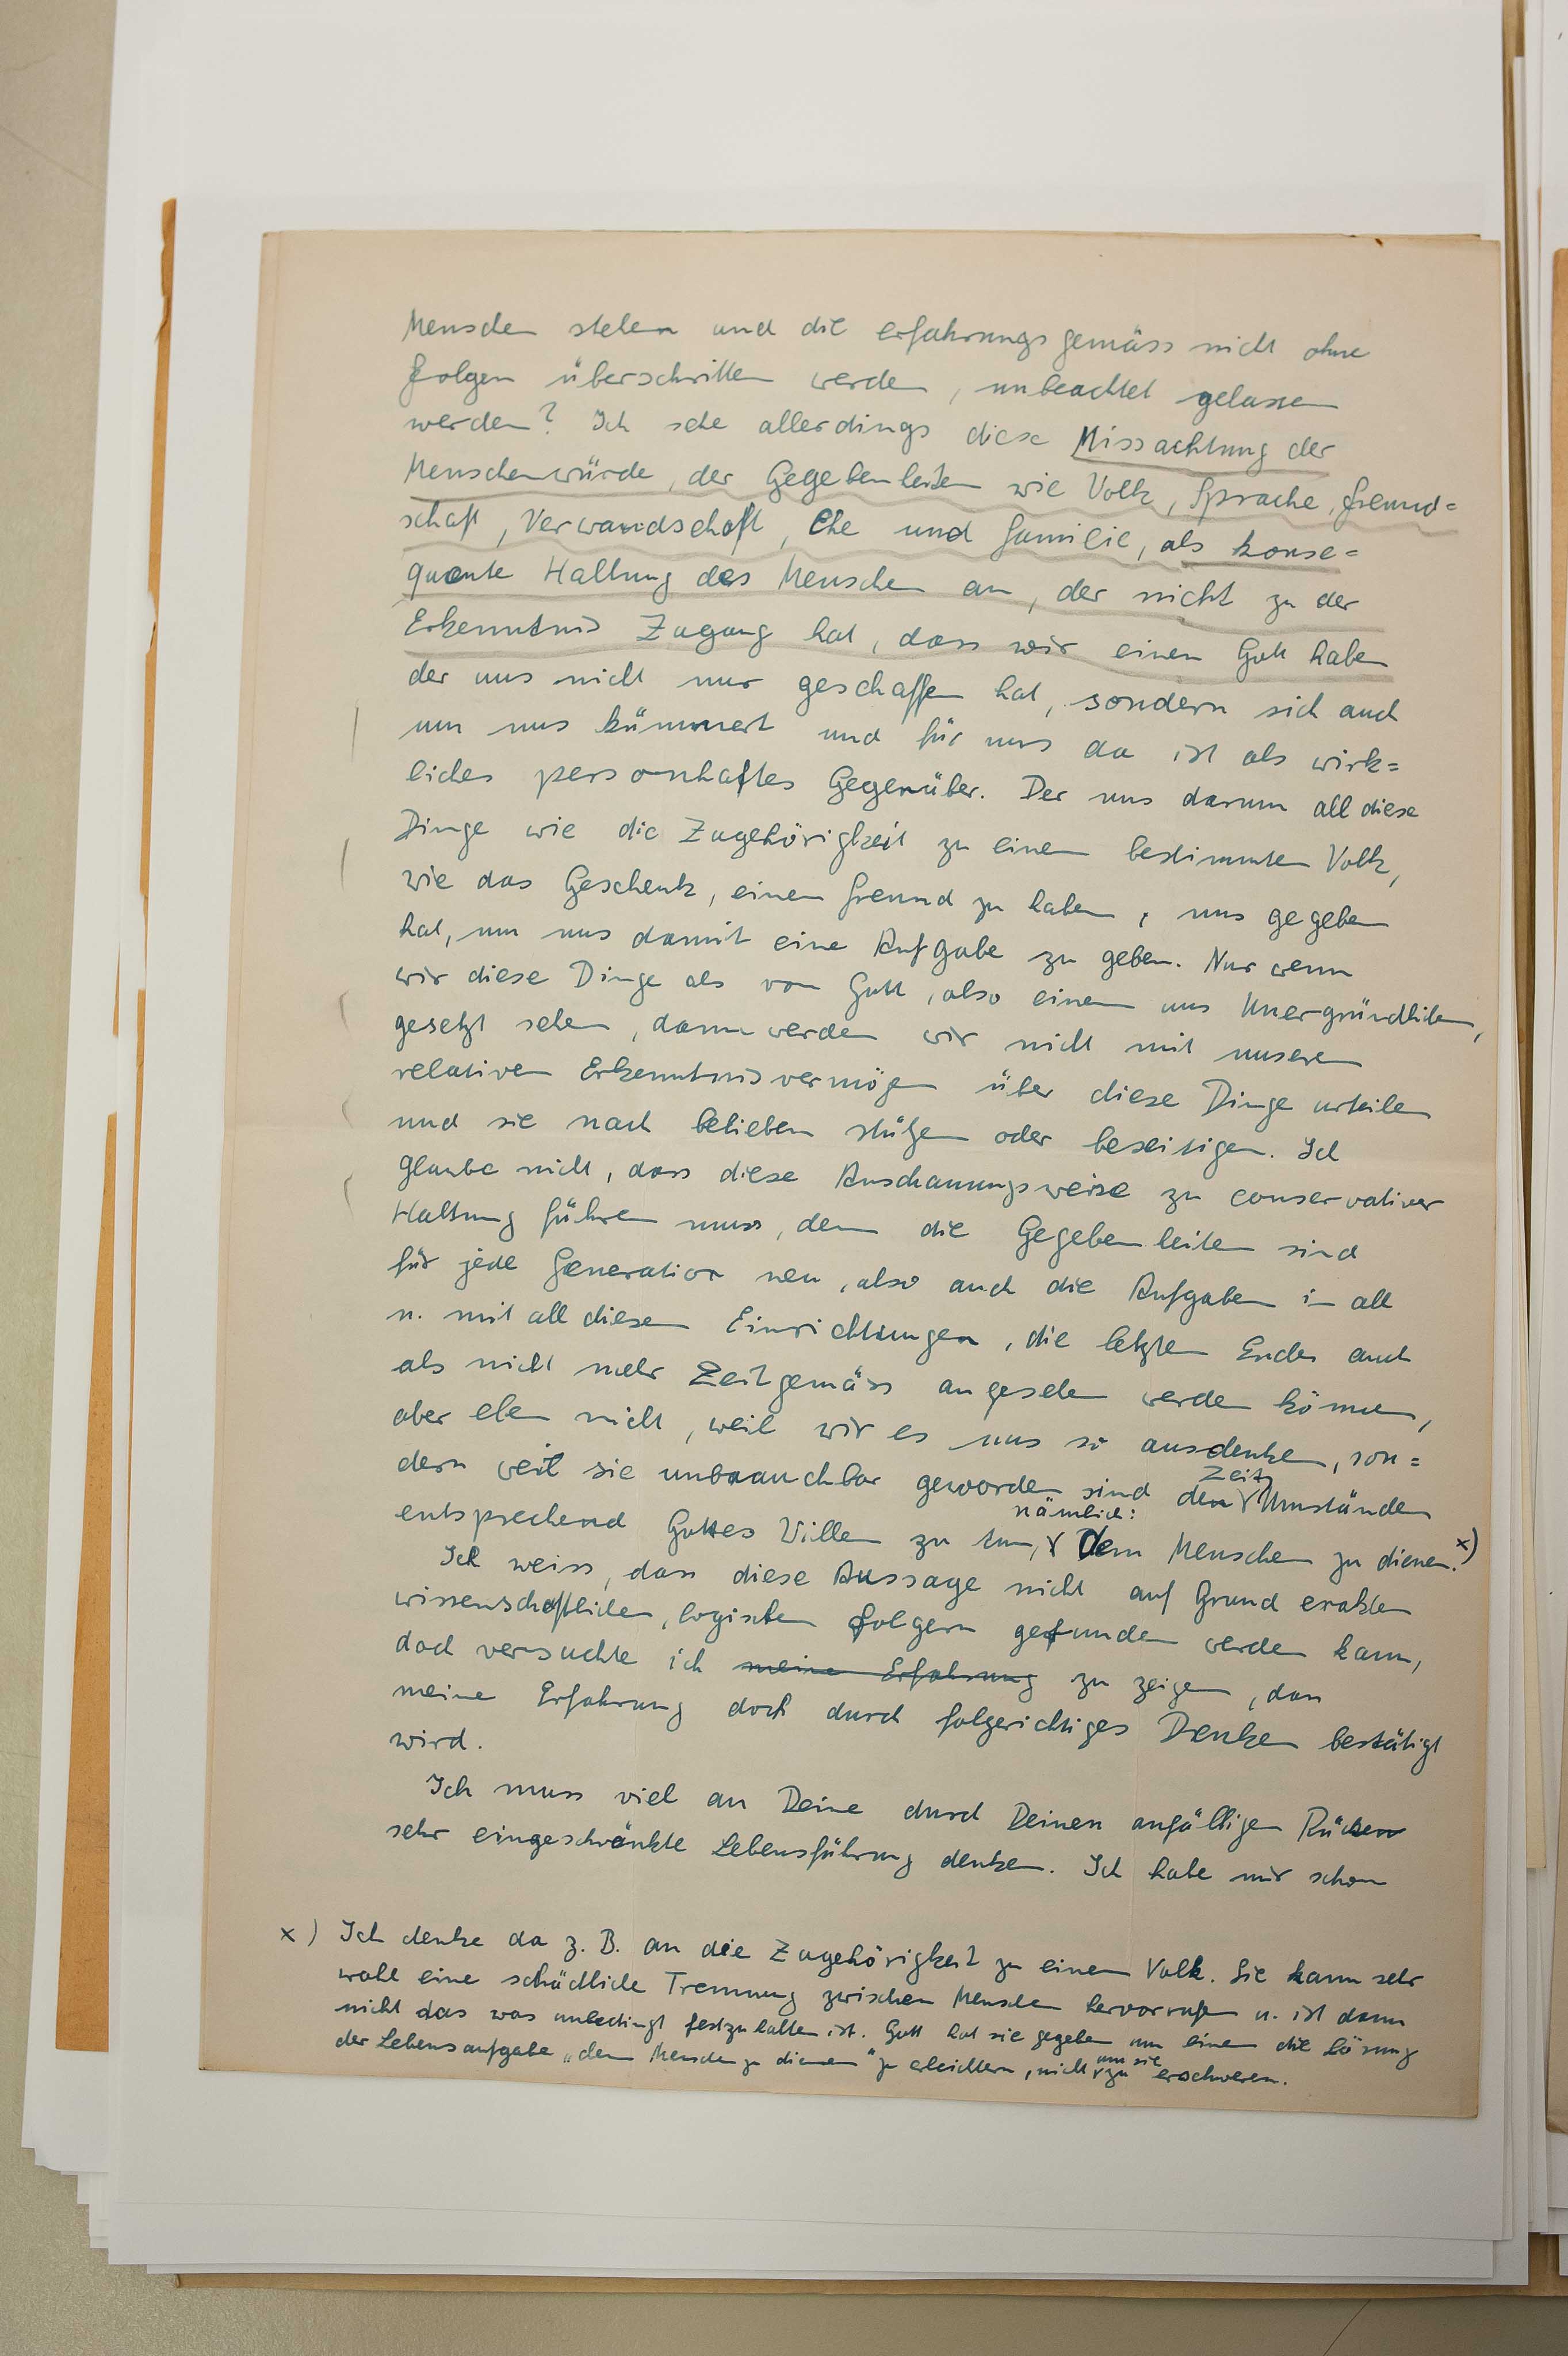 Menschen stehen und die erfahrungsgemäss nicht ohne
Folgen überschritten werden, unbeachtet gelassen
werden? Ich sehe allerdings diese Missachtung der
Menschenwürde, der Gegebenheiten wie Volk, Sprache, Freund=
schaft, Verwandschaft, Ehe und Familie, als konse=
quente Haltung des Menschen an, der nicht zu der
Erkenntnis Zugang hat, dass wir einen Gott haben
der uns nicht nur geschaffen hat, sondern sich auch
um uns kümmert und für uns da ist als wirk=
liches personhaftes Gegenüber. Der uns darum all diese
Dinge wie die Zugehörigkeit zu einem bestimmten Volk,
wie das Geschenk, einen Freund zu haben, uns gegeben
hat, um uns damit eine Aufgabe zu geben. Nur wenn
wir diese Dinge als von Gott, also einem uns Unergründlichen,
gesetzt sehen, dann werden wir nicht mit unserem
relativen Erkenntnisvermögen über diese Dinge urteilen
und sie nach belieben stützen oder beseitigen. Ich
glaube nicht, dass diese Anschauungsweise zu conservativer
Haltung führen muss, denn die Gegebenheiten sind
für jede Generation neu, also auch die Aufgaben in all
u. mit all diesen Einrichtungen, die letzten Endes auch
als nicht mehr Zeitgemäss angesehen werden können,
aber eben nicht, weil wir es uns so ausdenken, son=
dern weil sie unbrauchbar geworden sind den Zeit Umständen
entsprechend Gottes Willen zu tun, nämlich: Dem Menschen zu dienen. x)
Ich weiss, dass diese Aussage nicht auf Grund exakten
wissenschaftlichen, logischen folgern gefunden werden kann,
doch versuchte ich meine Erfahrung zu zeigen, dass
meine Erfahrung doch durch folgerichtiges Denken bestätigt
wird.
Ich muss viel an Deine durch Deinen anfälligen Rücken
sehr eingeschränkte Lebensführung denken. Ich habe mir schon
x) Ich denke da z. B. an die Zugehörigkeit zu einem Volk. Sie kann sehr
wohl eine schädliche Trennung zwischen Menschen hervorrufen u. ist dann
nicht das was unbedingt festzuhalten ist. Gott hat sie gegeben um einem die Lösung
der Lebensaufgabe „dem Menschen zu dienen" zu erleichtern, nicht um sie zu erschweren.